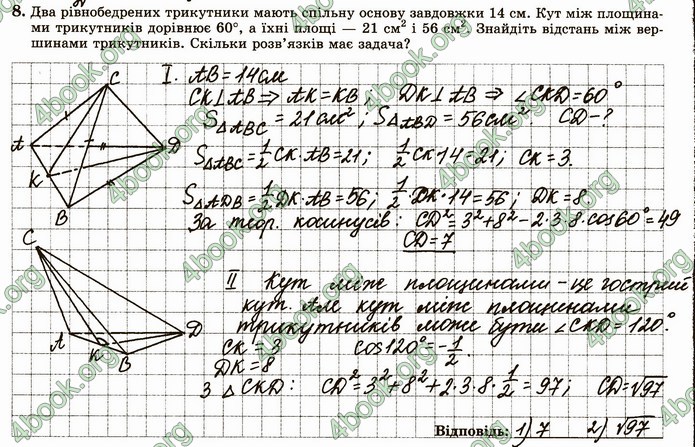 8. Два рівнобедрених трикутники мають спільну основу завдовжки 14 см. Кут між площина-
ми трикутників дорівнює 60°, а їхні площі — 21 см² і 56 см². Знайдіть відстань між вер-
шинами трикутників. Скільки розв'язків має задача?
I. AB = 14 см
CK⊥AB ⇒ AK = KB; DK⊥AB ⇒ ∠CKD = 60°
S△ABC = 21 см²; S△ABD = 56 см² CD - ?
S△ABC = 1/2 CK·AB = 21; 1/2 CK·14 = 21; CK = 3.
S△ADB = 1/2 DK·AB = 56; 1/2 DK·14 = 56; DK = 8
За теор. косинусів: CD² = 3² + 8² - 2·3·8·cos60° = 49
CD = 7
C
A
D
K
B
II Кут між площинами - це гострий
кут. Але кут між площинами
трикутників може бути ∠CKD = 120°
CK = 3 cos120° = -1/2.
DK = 8
З △CKD: CD² = 3² + 8² + 2·3·8·1/2 = 97; CD = √97
C
A
K
B
D
Відповідь: 1) 7 2) √97
4book.org
4book.org
4book.org
4book.org
4book.org
4book.org
4book.org
4book.org
4book.org